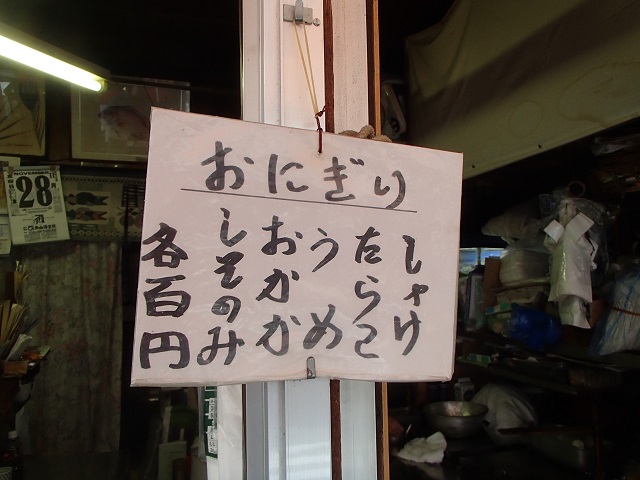 おにぎり
しゃけ
たらこ
うめ
おかか
しそのみ
各百円
28